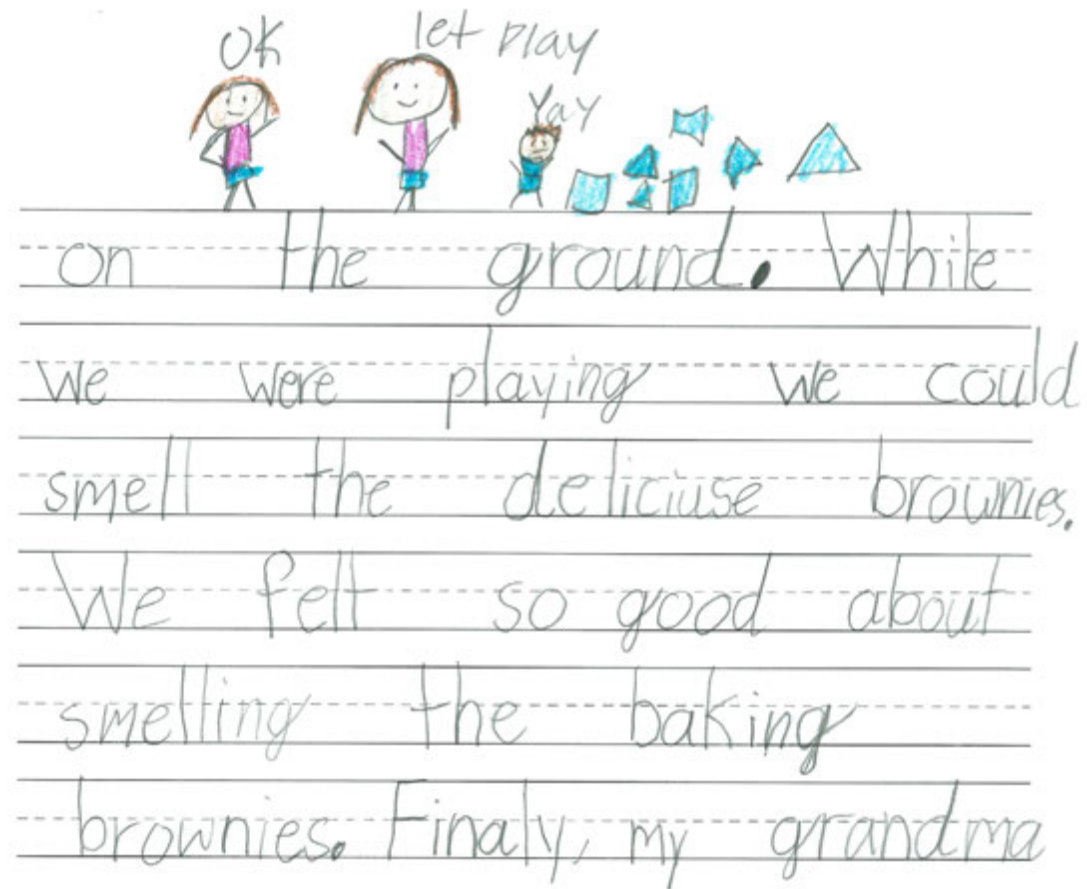 OK
let play
Yay
on the ground. While
we were playing we could
smell the deliciuse brownies.
We felt so good about
smelling the baking
brownies. Finaly, my grandma